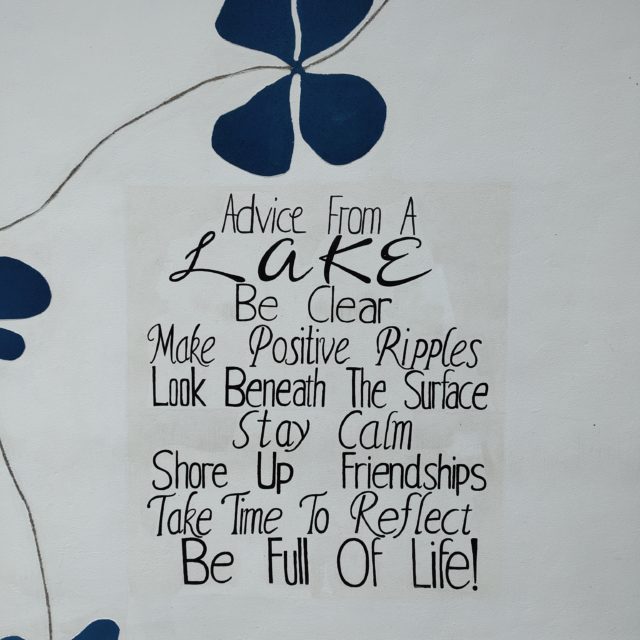 Advice From A
LAKE
Be Clear
Make Positive Ripples
Look Beneath The Surface
Stay Calm
Shore Up Friendships
Take Time To Reflect
Be Full Of Life!